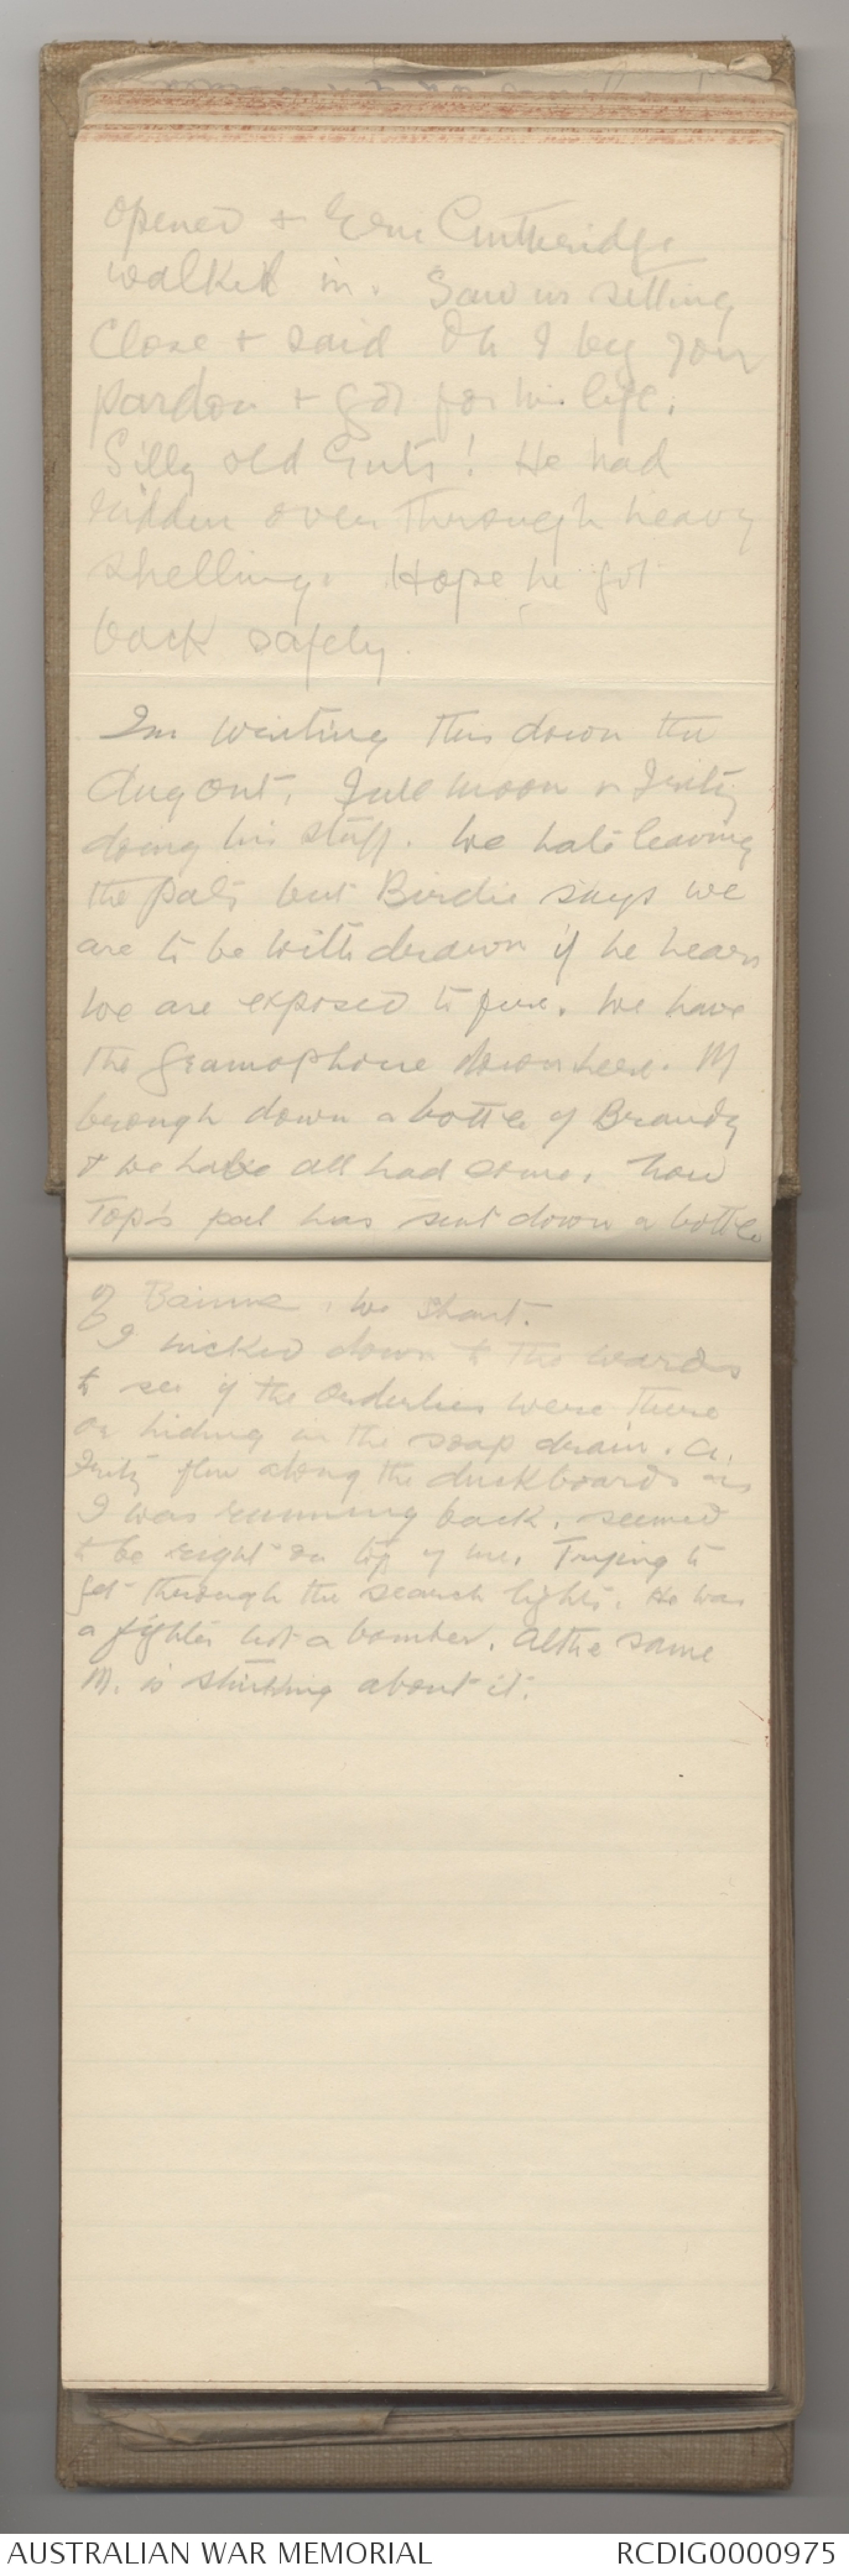 opened & Eric Cuttheridge
walked in. Saw us sitting
Close & said Oh I beg your
pardon & got for his life.
Silly old Guts! He had
ridden over through heavy
shelling. Hope he got
back safely.
Im writing this down the
dugout. Full moon & Fritz
doing his stuff. We hate leaving
the pats but Birdie says we
are to be withdrawn if he hears
we are exposed to fire. We have
the gramophone down here. M
brough down a bottle of Brandy
& we have all had some. Now
Top's pal has sent down a bottle
of We shant.
I nicked down to the wards
to see if the Orderlies were there
or hiding in the soap drain. A.
Fritz flew along the duckboards as
I was running back, seemed
to be right on top of me. Trying to
get through the search lights. He was
a fighter not a bomber. Althe same
M. is about it.
AUSTRALIAN WAR MEMORIAL
RCDIG0000975